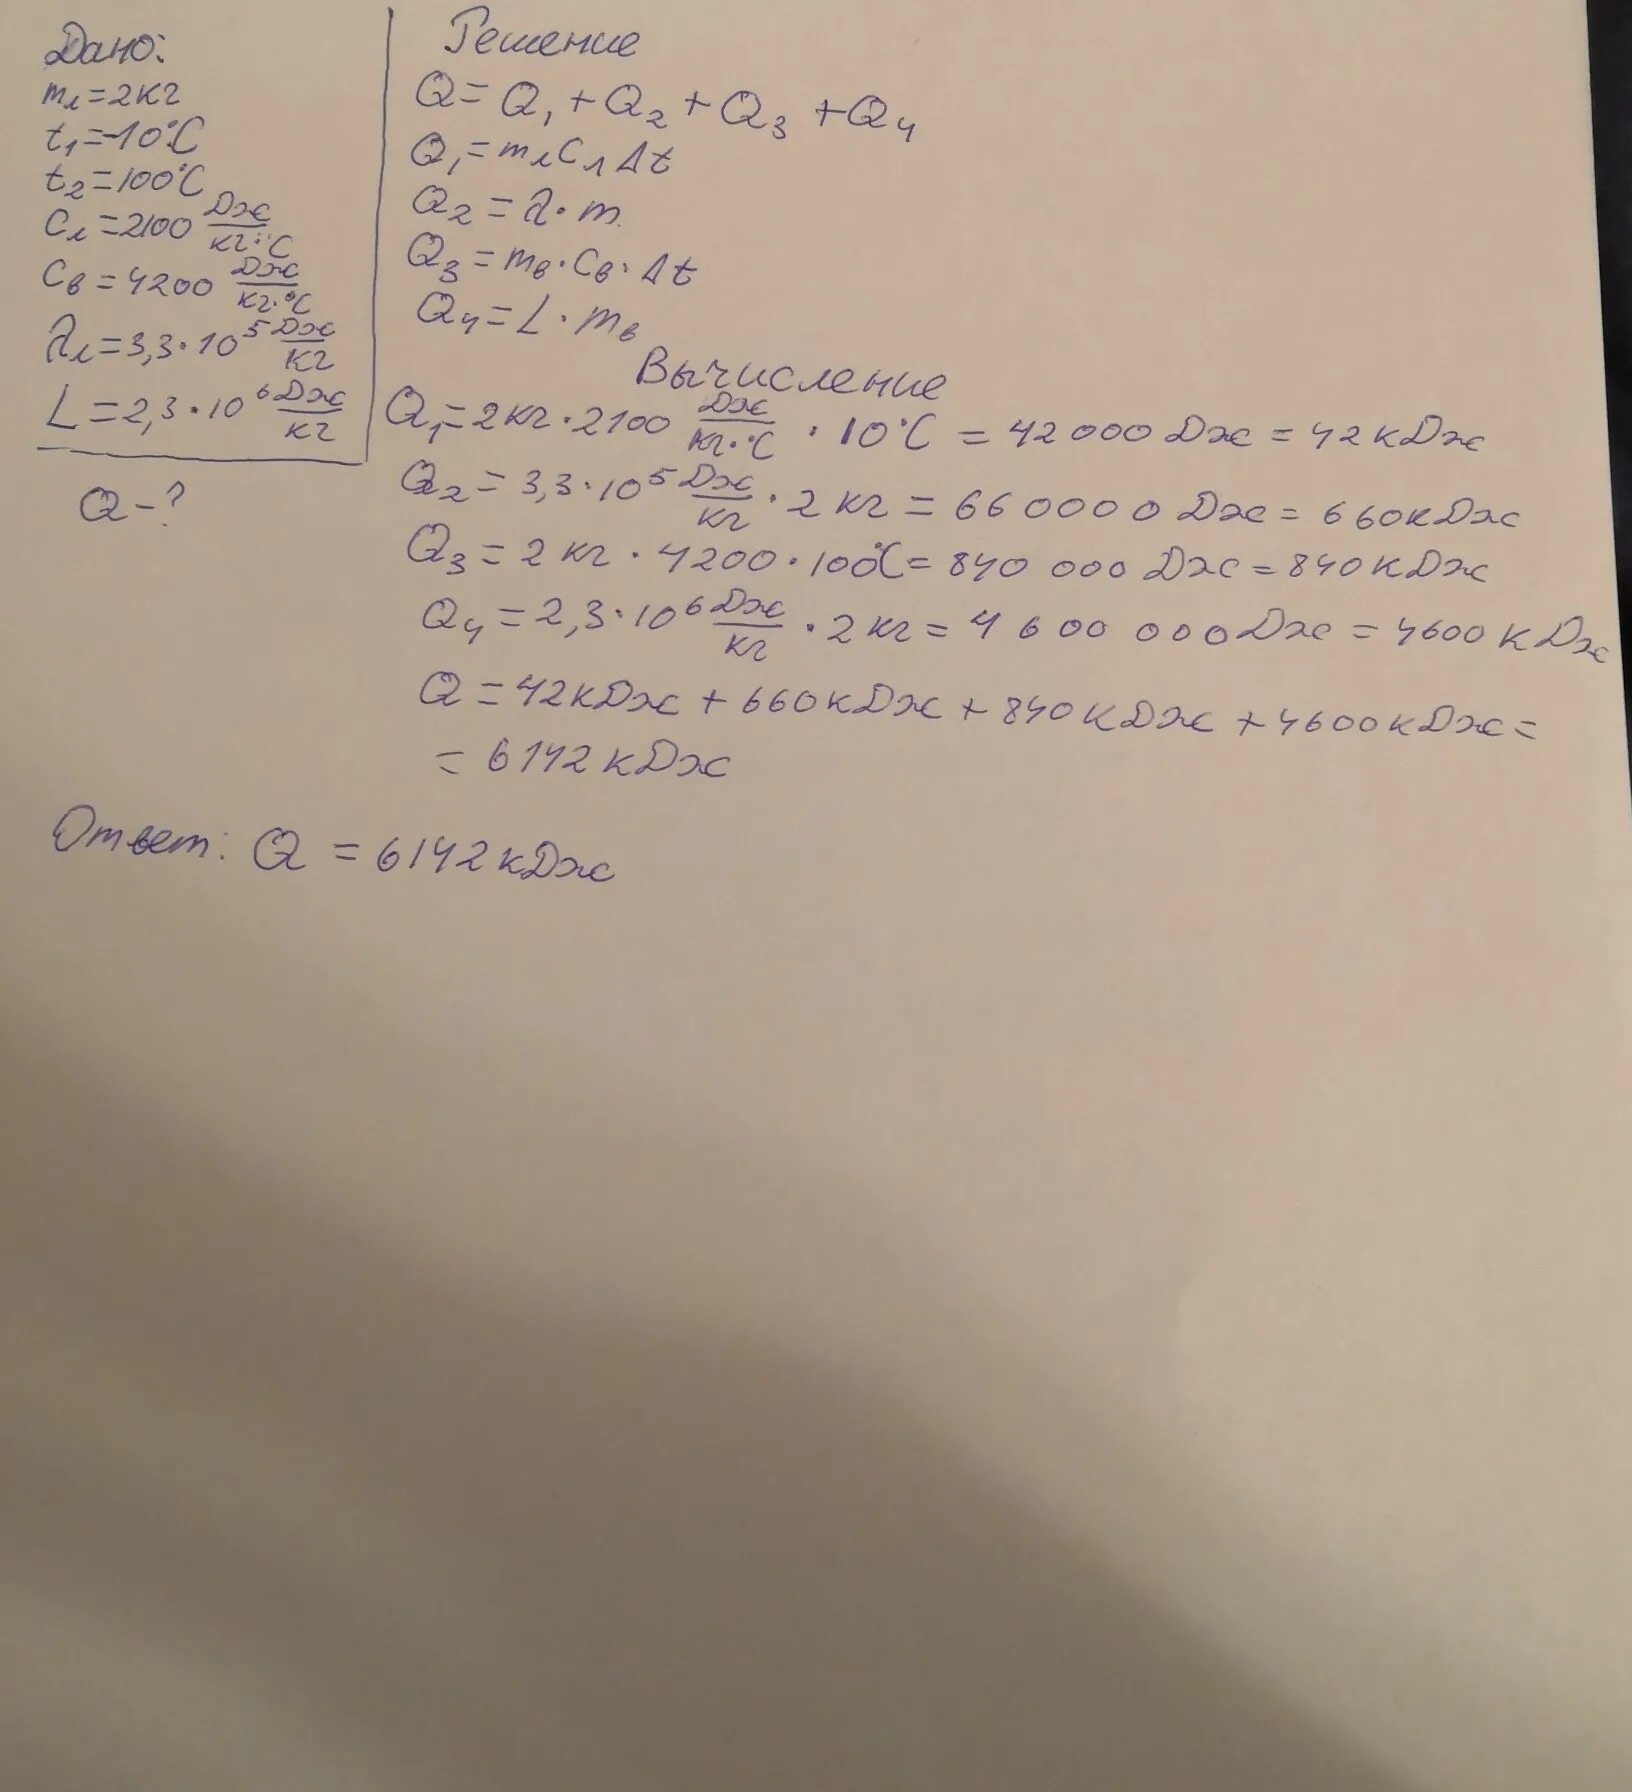 Дано:
mл=2кг
t₁=-10°C
t₂=100°C
Cл=2100 Дж/кг·°C
Cв=4200 Дж/кг·°C
λл=3,3·10⁵ Дж/кг
L=2,3·10⁶ Дж/кг
Q-?
Решение
Q=Q₁+Q₂+Q₃+Q₄
Q₁=mлCлΔt
Q₂=λ·m.
Q₃=mв·Cв·Δt
Q₄=L·mв
Вычисление
Q₁=2кг·2100 Дж/кг·°C·10°C=42000Дж=42кДж
Q₂=3,3·10⁵ Дж/кг·2кг=660000Дж=660кДж
Q₃=2кг·4200·100°C=840 000Дж=840кДж
Q₄=2,3·10⁶ Дж/кг·2кг=4 600 000Дж=4600кДж
Q=42кДж+660кДж+840кДж+4600кДж=
=6142кДж
Ответ: Q=6142кДж